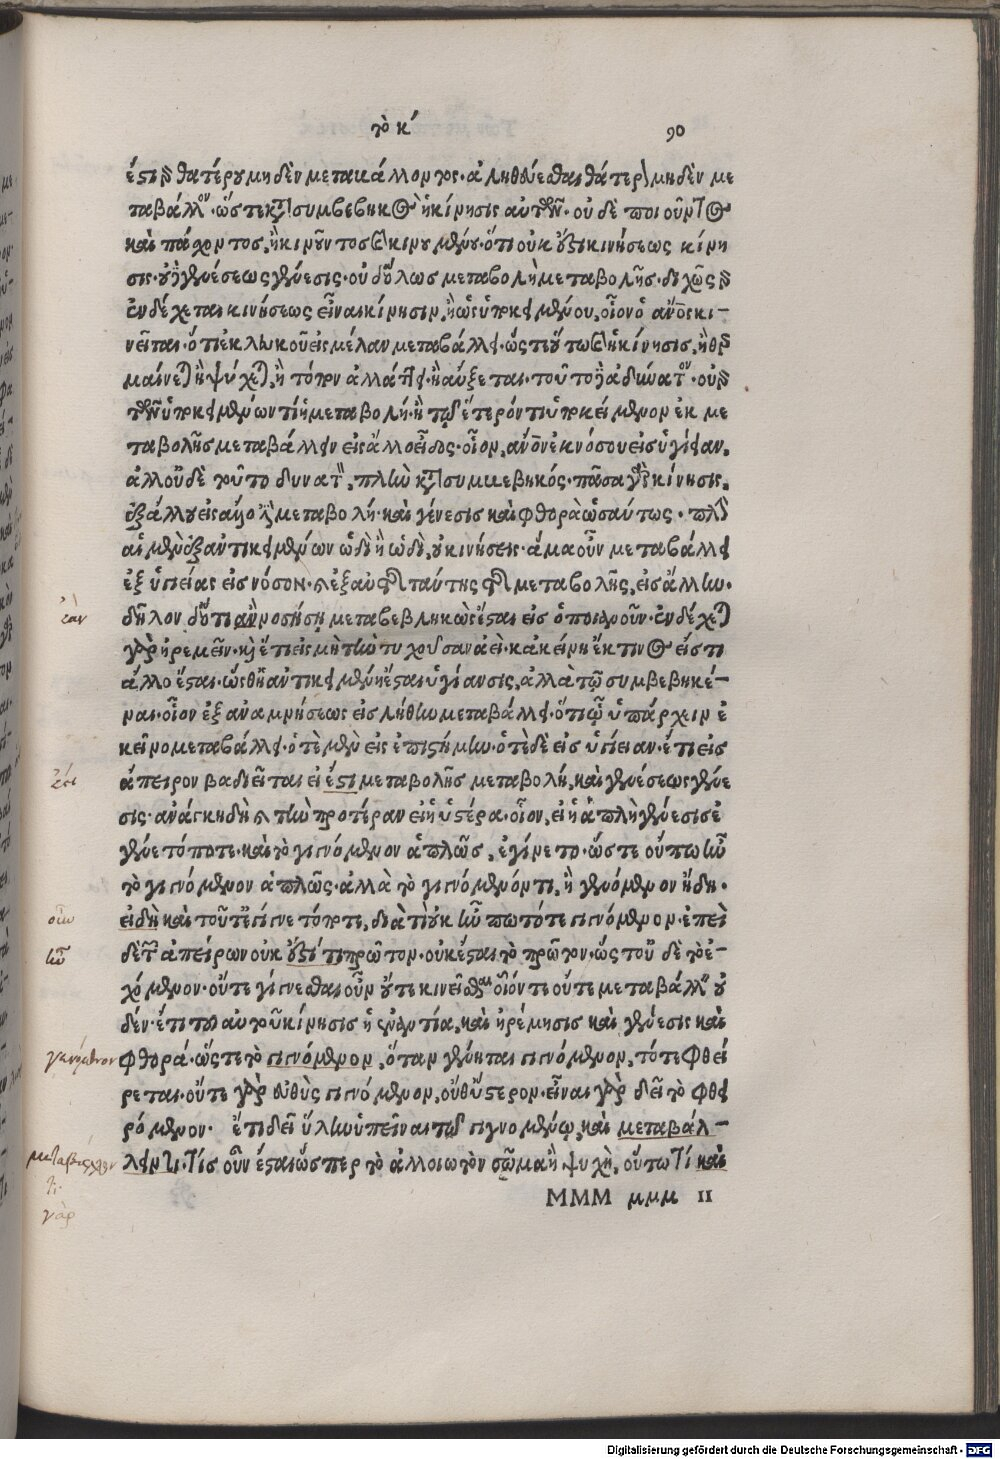 τὸ κʹ 90
ἐστι δὲ θατέρου μηδὲν μετακάλλοντος. ἀληθεύεσθαι θάτερον μηδὲν με
ταβάλλον. ὥστε κατὰ συμβεβηκὸς ἡ κίνησις αὐτῶν. οὐδὲ ποιοῦντος
καὶ πάχοντος, ἢ κινοῦντος καὶ κινουμένου. ὅτι οὐκ ἔστι κινήσεως κίνη
σις. οὐδὲ γενέσεως γένεσις. οὐδ' ὅλως μεταβολὴ μεταβολῆς. διχῶς γὰρ
ἐνδέχεται κινήσεως εἶναι κίνησιν, ἢ ὡς ὑποκειμένου, οἷον ὁ ἄνθρωπος κι-
νεῖται. ὅτι ἐκ λευκοῦ εἰς μέλαν μεταβάλλει. ὥστε οὕτω καὶ ἡ κίνησις, ἢ θερ
μαίνεται ἢ ψύχεται, ἢ τόπον ἀλλάττει. ἢ αὔξεται. τοῦτο δὲ ἀδύνατον. οὐ γὰρ
τῶν ὑποκειμένων τί ἡ μεταβολή. ἢ τῷ ἕτερόν τι ὑποκείμενον ἐκ με
ταβολῆς μεταβάλλειν εἰς ἄλλο εἶδος. οἷον, ἄνθρωπον ἐκ νόσου εἰς ὑγίειαν.
ἀλλ' οὐδὲ τοῦτο δυνατὸν, πλὴν κατὰ συμμεβηκός. πᾶσα γὰρ κίνησις,
ἐξ ἄλλου εἰς ἄλλο ἐστὶ μεταβολή. καὶ γένεσις καὶ φθορὰ ὡσαύτως. πλὴν
αἱ μὲν ἐξ ἀντικειμένων ὡδὶ ἢ ὡδί, οὐ κινήσεις. ἅμα οὖν μεταβάλλει
ἐξ ὑγιείας εἰς νόσον. καὶ ἐξ αὐτῆς ταύτης τῆς μεταβολῆς, εἰς ἄλλην.
δῆλον δὴ ὅτι ἂν νοσήσῃ μεταβεβληκὼς ἔσται εἰς ὁποιανοῦν. ἐνδέχεται
γὰρ ἠρεμεῖν. καὶ ἔτι εἰς μὴ τὴν τυχοῦσαν ἀεί. κἀκείνη ἔκ τινος εἴς τι
ἄλλο ἔσται. ὥσθ' ἡ ἀντικειμένη ἔσται ὑγίανσις, ἀλλὰ τῷ συμβεβηκέ-
ναι. οἷον ἐξ ἀναμνήσεως εἰς λήθην μεταβάλλει. ὅτι ᾧ ὑπάρχειν ἐ
κεῖνο μεταβάλλει. ὁτὲ μὲν εἰς ἐπιστήμην. ὁτὲ δὲ εἰς ὑγίειαν. ἔτι εἰς
ἄπειρον βαδιεῖται εἰ ἔστι μεταβολῆς μεταβολή, καὶ γενέσεως γένε
σις. ἀνάγκη δὴ καὶ τὴν προτέραν εἰ ἡ ὑστέρα. οἷον, εἰ ἡ ἁπλῆ γένεσις ἐ
γένετό ποτε. καὶ τὸ γινόμενον ἁπλῶς, ἐγίνετο. ὥστε οὔπω ἦν
τὸ γινόμενον ἁπλῶς. ἀλλὰ τὸ γινόμενόν τι, ἢ γενόμενον ἤδη.
εἰ δὴ καὶ τοῦτ' ἐγίνετό ποτε, διὰ τί οὐκ ἦν πω τότε γινόμενον. ἐπεὶ
δὲ τῶν ἀπείρων οὐκ ἔστί τι πρῶτον. οὐκ ἔσται τὸ πρῶτον. ὥστ' οὐδὲ τὸ ἐ-
χόμενον. οὔτε γίνεσθαι οὖν οὔτε κινεῖσθαι οἷόν τε οὔτε μεταβάλλειν οὐ
δέν. ἔτι τοῦ αὐτοῦ κίνησις ἡ ἐναντία, καὶ ἠρέμησις καὶ γένεσις καὶ
φθορά. ὥστε τὸ γινόμενον, ὅταν γένηται γινόμενον, τότε φθεί
ρεται. οὔτε γὰρ εὐθὺς γινόμενον, οὔθ' ὕστερον. εἶναι γὰρ δεῖ τὸ φθει
ρόμενον. ἔτι δεῖ ὕλην ὑπεῖναι τῷ γιγνομένῳ, καὶ μεταβάλ-
λοντι. τίς οὖν ἔσται ὥσπερ τὸ ἀλλοιωτὸν σῶμα ἢ ψυχὴ, οὕτω τί καὶ
MMM μμμ II
ἐὰν
ἐσι
οὖν
ἦν
γενόμενον
τι
γὰρ
Digitalisierung gefördert durch die Deutsche Forschungsgemeinschaft - DFG